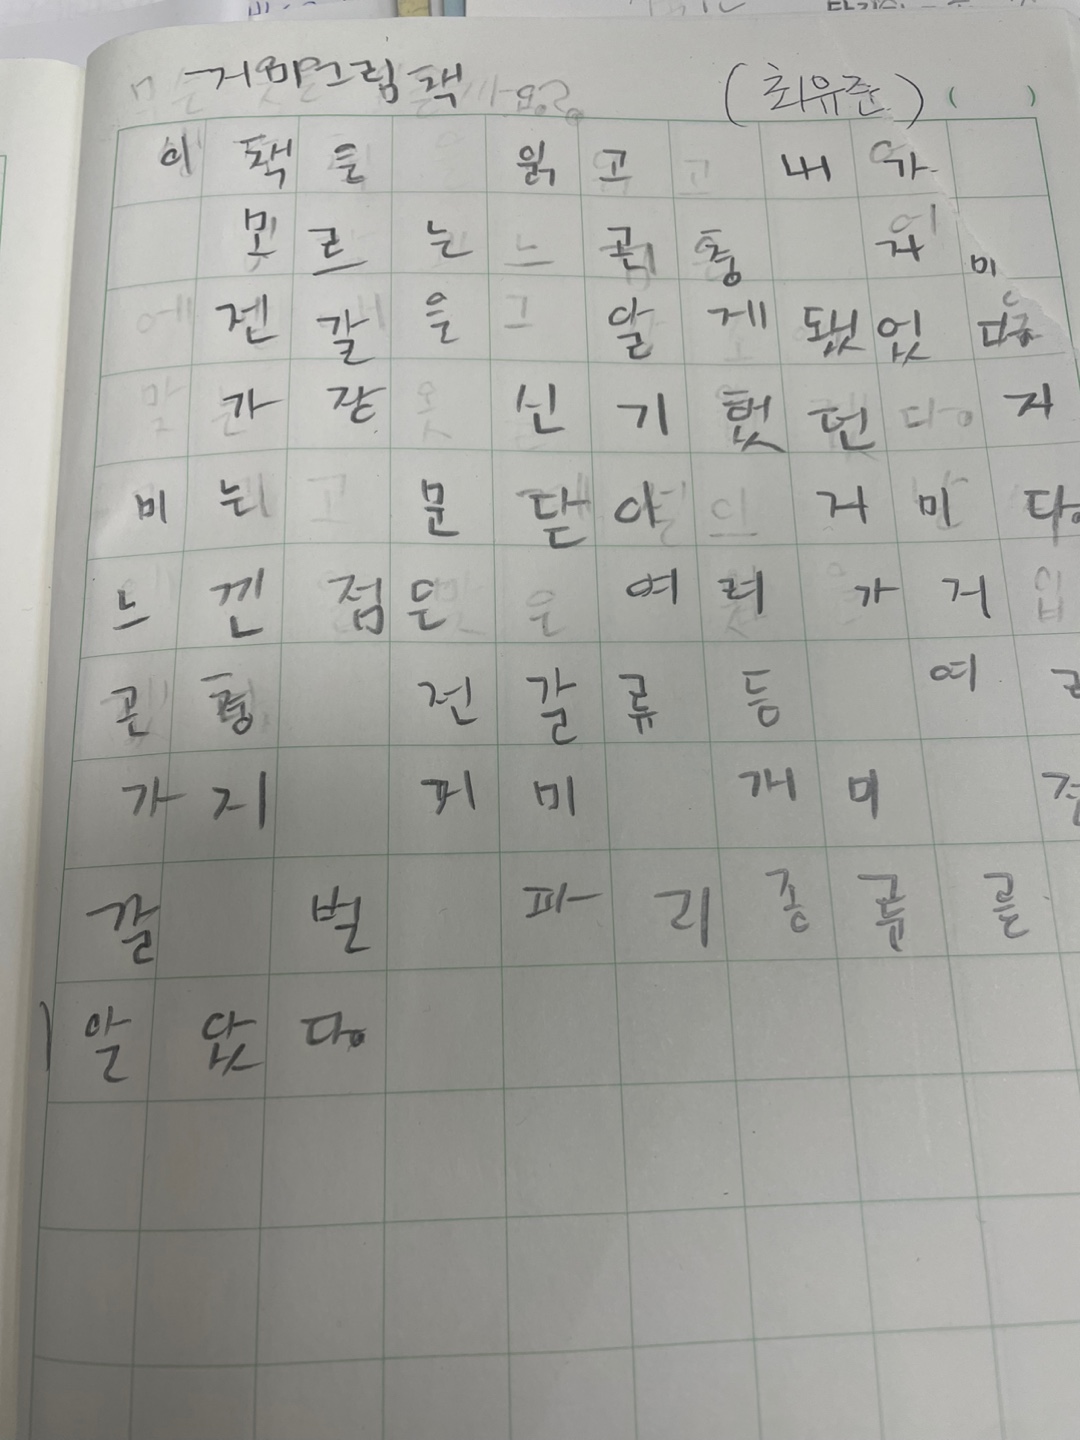 거미그림책 (최유준) ( )
이책를 읽고 내가
못르는 곤충 거미
젠갈을 알게됐었다.
가장 신기했던 거
미는 문닫아 거미다.
느낀점은 여러가거
곤충 전갈류등 여러
가지 거미 개미 전
갈 벌 파리종류를
알았다.